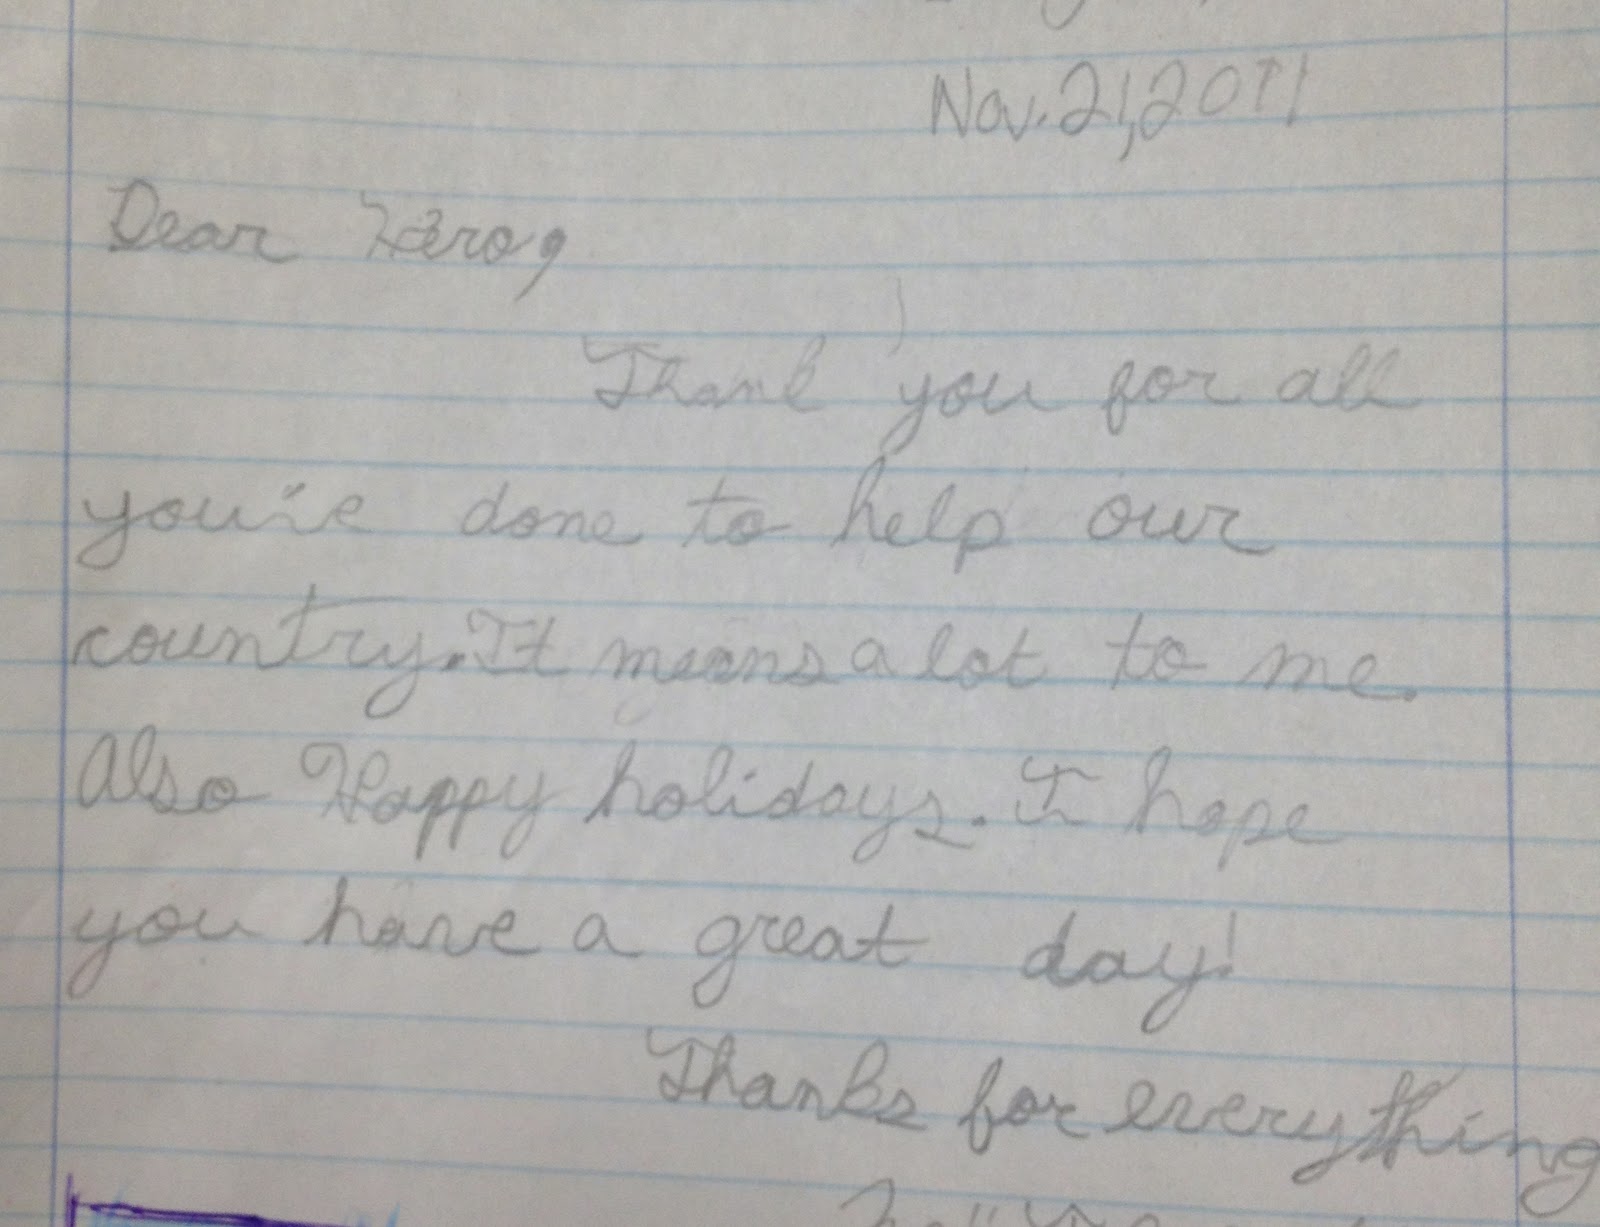 Nov. 21, 2011
Dear Hero,
Thank you for all
you've done to help our
country. It means a lot to me.
Also Happy holidays. I hope
you have a great day!
Thanks for everything